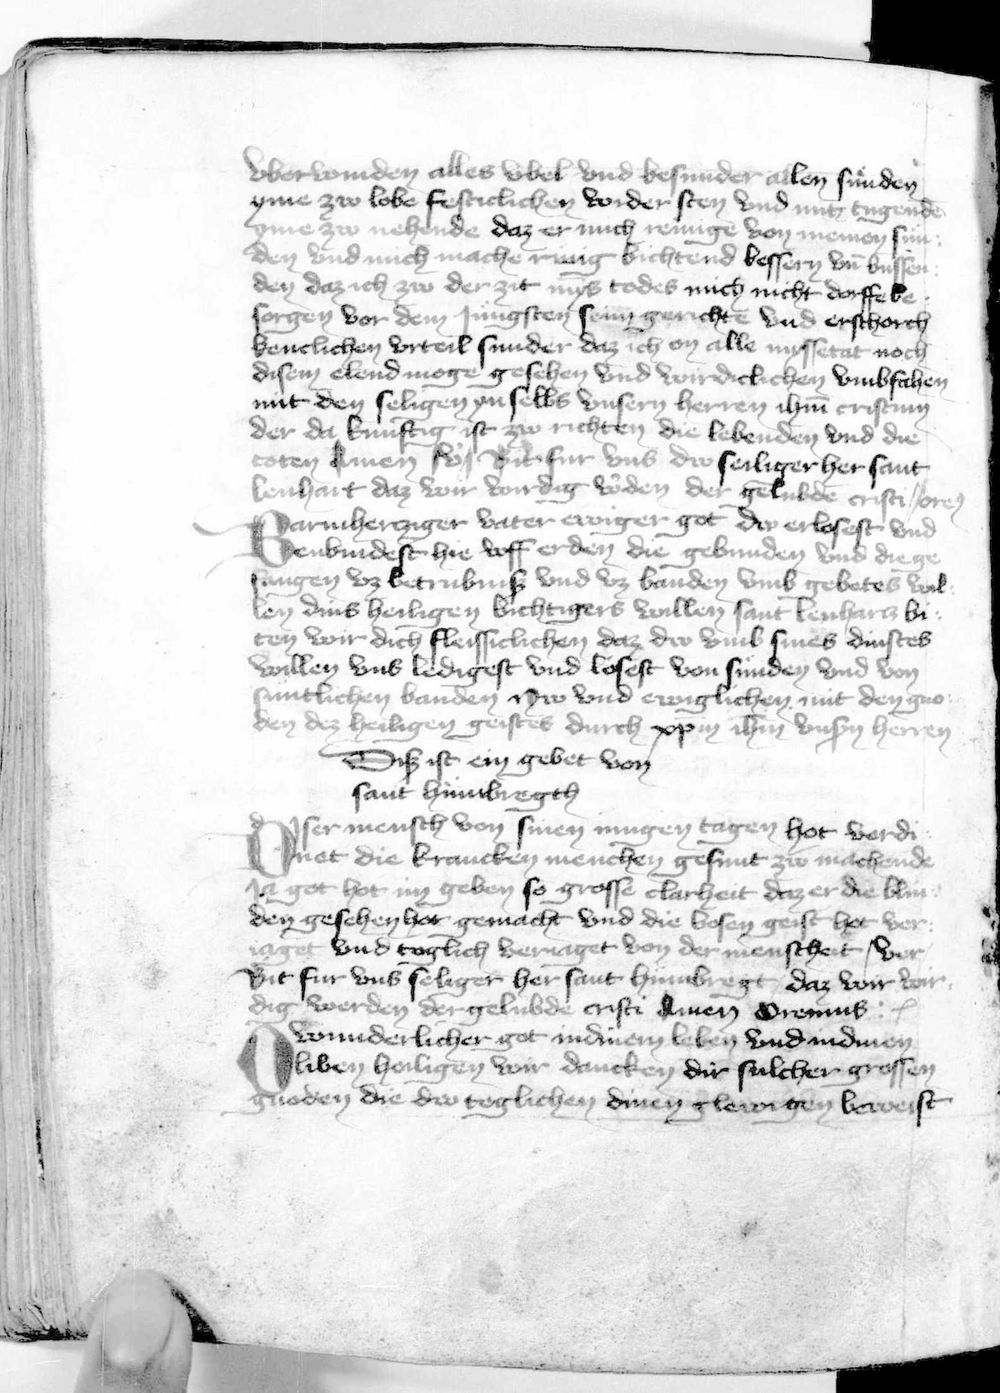 vberwinden alles vbel vnd besunder allen sunden
yme zw lobe festiclichen wider sten vnd mitz tugende
yme zw nehende daz er mich reinige von meinen sun
den vnd mich mache rwig bichtend bessern vn bussen
den daz ich zw der zit mys todes mich nicht dorffe be
sorgen vor dem jungsten sein gerichte vnd erschrock
kenclichen vrteil sunder daz ich on alle myssetat noch
disem elend moge gesehen vnd wirdiclichen vmbfahen
mit den seligen yn selbs vnsern herren ihm cristum
der da kunftig ist zw richten die lebenden vnd die
toten Amen Bit fur vns dw seiliger her sant
lenhart daz wir wirdig werden der gelubde cristi ore
Barmhertziger vater ewiger got dw erlosest vnd
enbindest hie vff erden die gebunden vnd die ge
fangen vz betrubnisz vnd vz banden vmb gebetes wil
len dins heiligen bichtigers willen sant lenhartz bi
ten wir dich fleissiclichen daz dw vmb sines dinstes
willen vns ledigest vnd losest von sunden vnd von
suntlichen banden nw vnd ewiglichen mit den gno
den dez heiligen geistes durch xpm ihm vnsern herren
Disz ist ein gebet von
sant humbregth
Diser mensch von sinen iungen tagen hot verdi
net die krancken menchen gesunt zw machende
ja got hot im geben so grosse clarheit daz er die blin
den gesehen hot gemacht vnd die bosen geist hot ver
iaget vnd toglich veriaget von der menscheit ver
Bit fur vns seliger her sant humbregt daz wir wir
dig werden der gelubde cristi Amen Oremus
O wunderlicher got in dinem leben vnd in dinen
liben heiligen wir dancken dir sulcher grossen
gnoden die dw toglichen dinen glewigen beweist